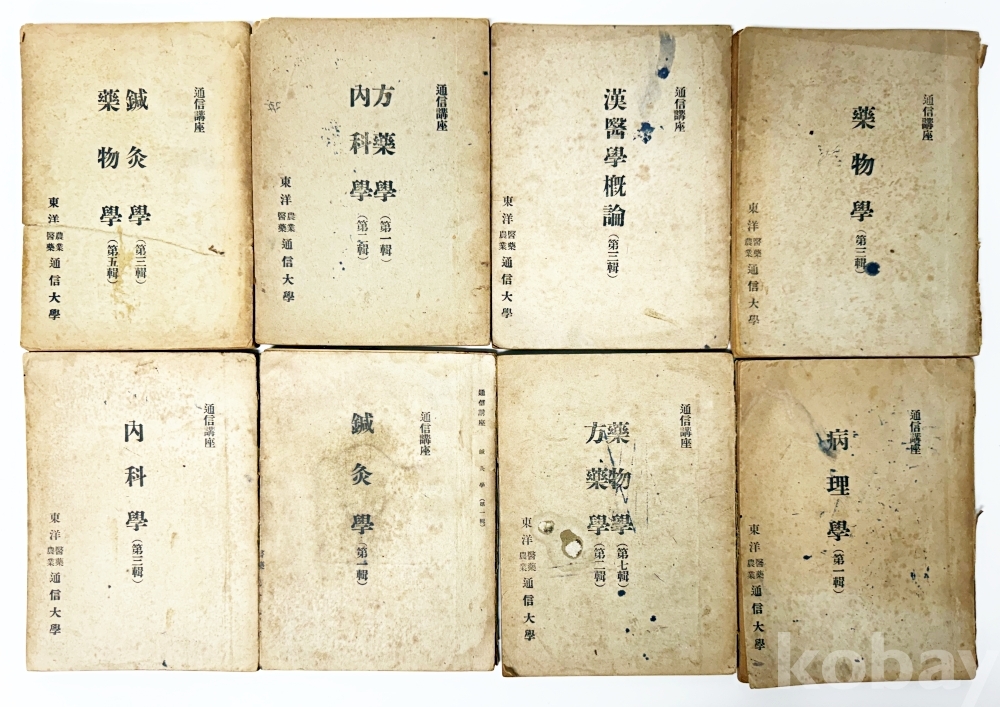 通信講座
鍼灸學(第三輯)
藥物學(第五輯)
東洋醫藥農業通信大學
通信講座
方藥學(第一輯)
內科學(第二輯)
東洋醫藥農業通信大學
通信講座
漢醫學槪論(第三輯)
東洋醫藥農業通信大學
通信講座
藥物學(第三輯)
東洋醫藥農業通信大學
通信講座
內科學(第三輯)
東洋醫藥農業通信大學
通信講座 鍼灸學(第一輯)
通信講座
鍼灸學(第一輯)
醫藥
通信講座
藥物學(第七輯)
方藥學(第二輯)
東洋醫藥農業通信大學
通信講座
病理學(第一輯)
東洋醫藥農業通信大學
kobay